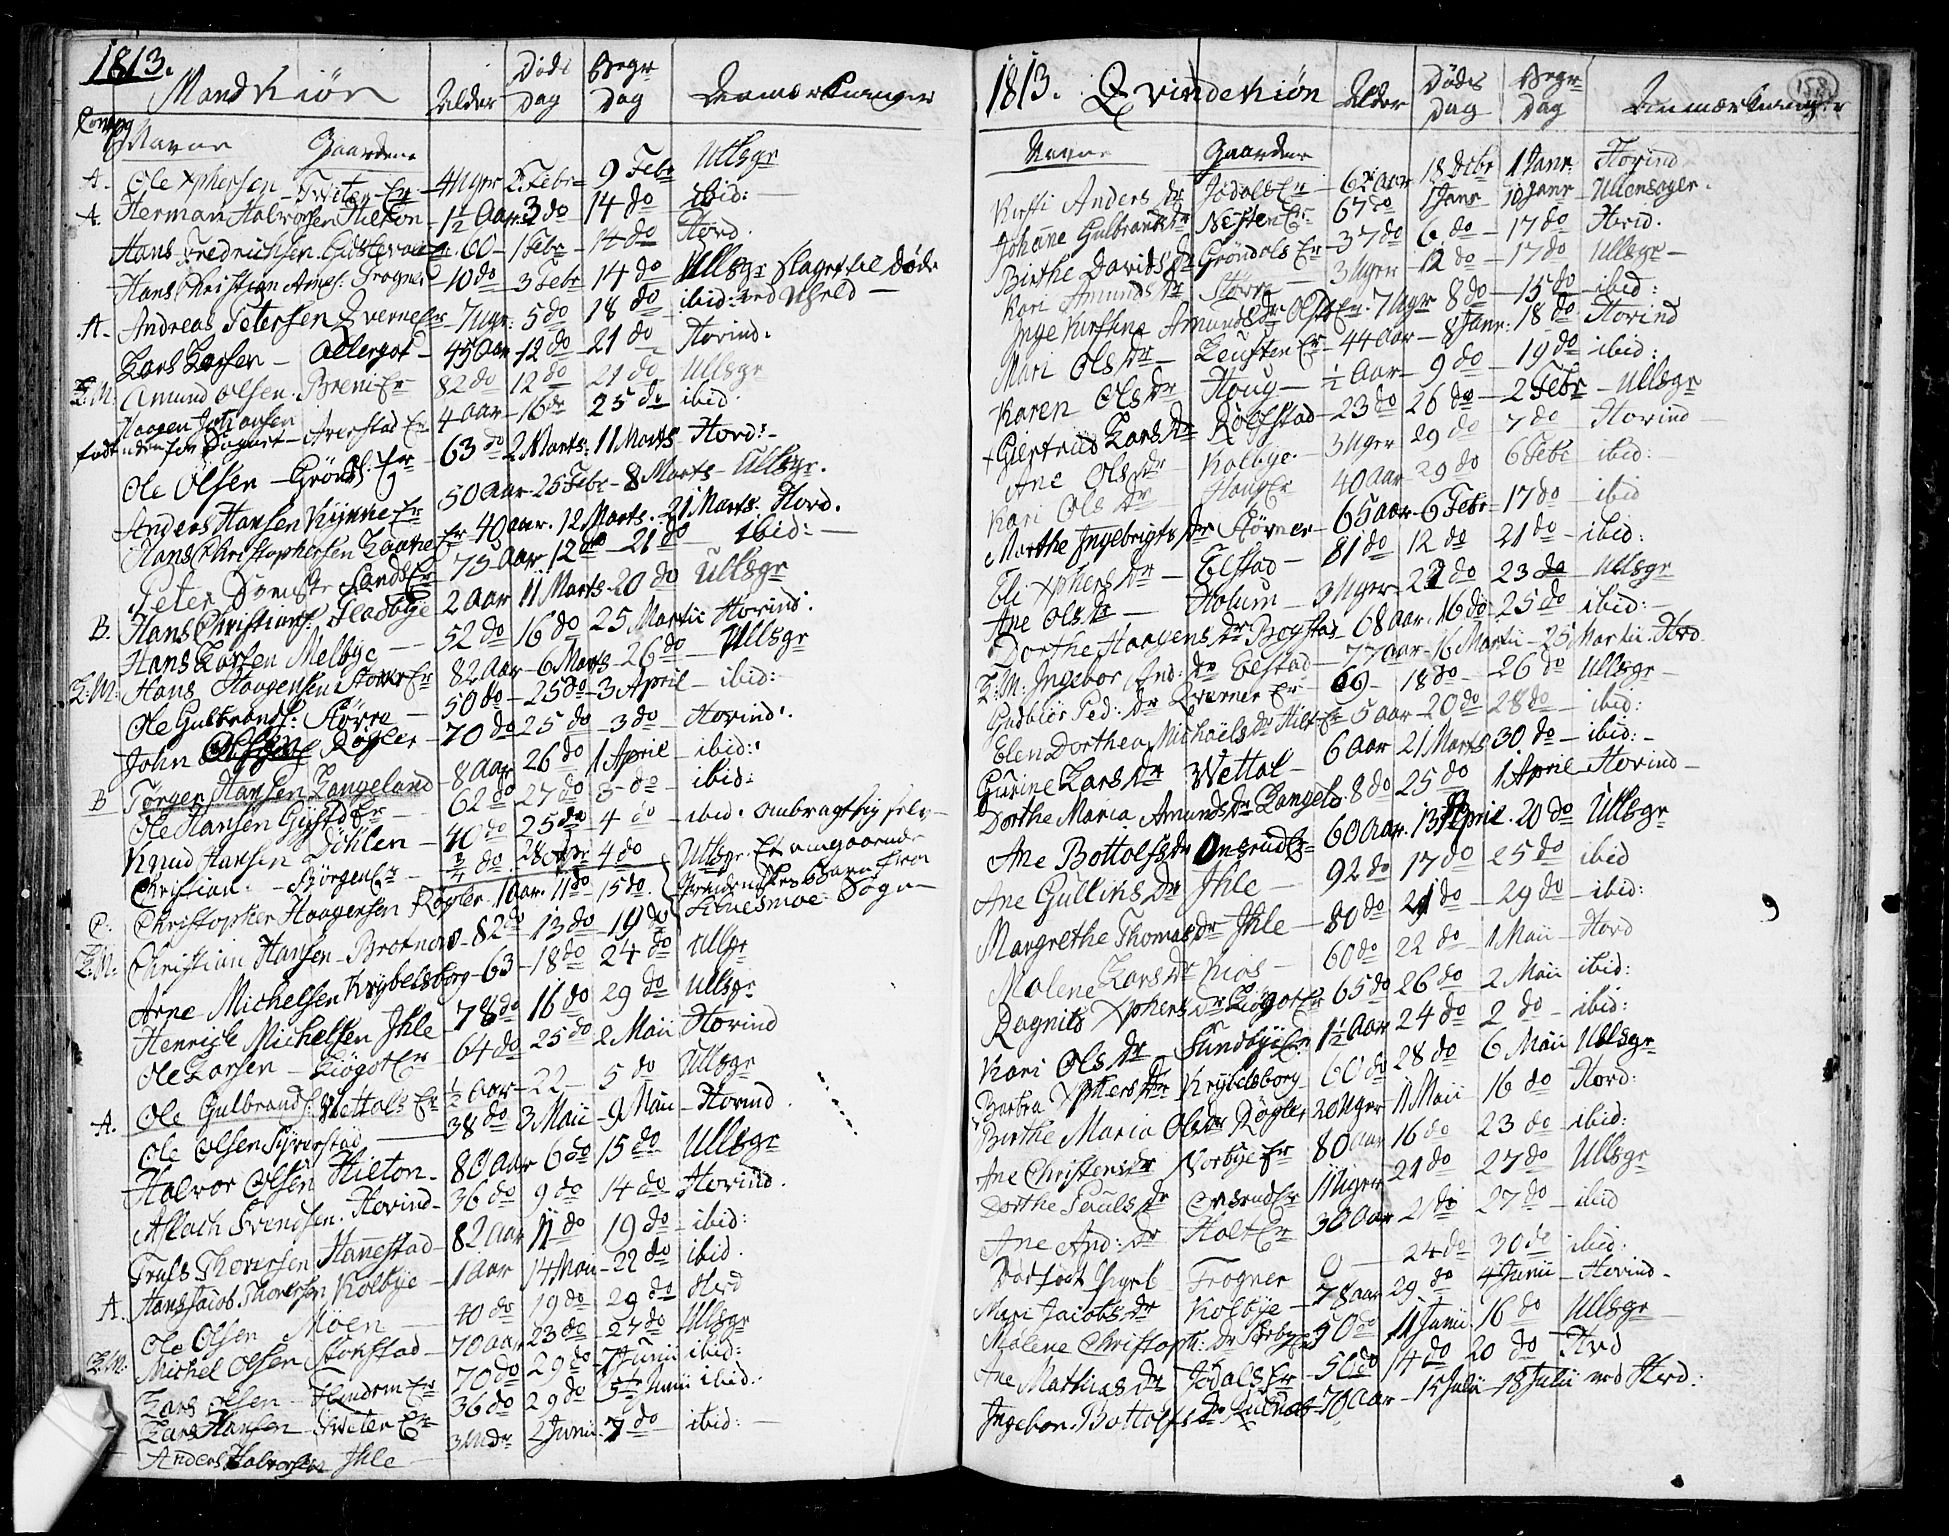 1813.
Mandkiøn Alder Døds Dag Begr Dag Anmærkninger
Navne Gaardene
A. Ole Xphersen - Tveter Er - 4 Uger 2 Febr - 9 Febr Ullsgr
A. Herman Halvorsen Hilton - 1½ Aar 3 do 14 do ibid: -
Hans Fredrichsen 60 - 1 Febr - 14 do Hovd.
Hans Christian Arnes: Frogner - 10 do - 3 Febr 14 do Ullsgr slaget til Døde
A. Andreas Petersen Qverne Er 7 Ugr: 5 do 18 do ibid: ved Uheld -
Lars Larsen - Allergot - 45 Aar 12 do - 21 do Hovind.
L.M: Amund Olsen. Breni Er 82 do 12 do 21 do Ullsgr
Haagen Johansen
født udenfor Sognet - Averstad Er 4 Aar - 16 do 25 do ibid.
Ole Olsen - Grønds: Er - 63 do 2 Marts: 11 Marts - Hovd: -
Anders Hansen Kijnne Er 50 Aar - 25 Febr - 8 Marts - Ullsgr.
Hans Christophersen Laache Er 40 aar. 12 Marts. 21 Marts. Hovd.
Peter Lands Er 75 Aar. 12 do - 21 do ibid: -
B. Hans Christians: Fladbye 2 Aar 11 Marts - 20 do Ullsgr
Hans Larsen Melbye - 52 do 16 do 25 Martii Hovind.
L.M: Hans Haagensen Større Er 82 Aar - 6 Marts - 26 do - Ullsgr
Ole Gulbrands: Større - 50 do - 25 do - 3 April - ibid: -
John Olsen Røgler - 70 do 25 do - 3 do - Hovind.
B Jørgen Hansen Langeland - 8 Aar 26 do 1 April - ibid:
Ole Hansen Gystd Er - 62 do - 27 do 3 do - ibid:
Knud Hansen Døhlen - 40 do 25 do - 4 do - ibid. ombragt sig selv -
Christian. - Børgen Er - ¾ do. 28 Apr 4 do Ullsgr. Et omgaaende
C. Christopher Haagensen Røgler. 1 Aar. 11 do - 15 do. Barn fra
L.M: Christian Hansen - Brotnow - 82 do 13 do - 19 do Sogn
Arne Michelsen Krybelsborg - 63 - 18 do 24 do Ullsgr
Henrich Michelsen Ihle - 78 do 16 do 29 do Ullsgr
Ole Larsen - Liøgot Er - 64 do 25 do 2 Maii Hovind
A. Ole Gulbrands: Vettals Er ½ Aar - 22 - 5 do Ullsgr
Ole Olsen Syverstad - 38 do 3 Maii - 9 Maii - Hovind
Halvor Olsen Hilton. 80 Aar 6 do 15 do Ullsgr
Aslach Svendsen. Hovind - 36 do 9 do 14 do Hovind.
Truls Thoresen Hanestad - 82 aar 11 do 19 do - ibid:
A. Hans Jacob Thoresen Kolbye - 1 Aar 14 Maii - 22 do ibid.
Ole Olsen Moen - 40 do 19 do 29 do Hovd
L.M: Michel Olsen Stokstad - 70 aar 23 do - 27 do Ullsgr
Lars Olsen - Hendrom Er 70 do 29 do - 7 Junii ibid:
Lars Hansen - Tveter Er - 36 do 29 do 5te Junii ibid:
Anders Halvorsen Ihle - 3 Mdr 2 Junii - 7 do - ibid: -
1813. Qvindekiøn Alder Døds Dag Begr Dag Anmærkninger
158
Navne Gaardene
Kirsti Anders Dr Jødals Er - 62 aar 18 Debr 1 Janr. Hovind
Johanne Gulbrands Dr Nesten Er - 67 do 1 Janr - 10 Janr - Ullensager.
Birthe Davids Dr Grøndals Er - 37 do 6 do - 17 do Hovd.
Kari Amunds Dr Størra - 3 Uger - 12 do - 17 do Ullsgr -
Inge Kirstine Amunds Dr Er. 7 Ugr 8 do - 15 do - ibid:
Mari Ols Dr - Leusten Er - 44 Aar - 8 Janr: 18 do Hovind
Karen Ols Dr Houg - ½ Aar - 9 do - 19 do ibid:
+ Giertrud Lars Dr Rølfstad - 23 do 26 do - 2 Febr - Ullsgr
Ane Ols Dr Kolbye - 3 Uger 29 do 7 do - Hovind -
Kari Ols Dr Houg Er 40 Aar 29 do 6 Febr ibid: -
Marthe Ingebrigts Dr Størner - 65 aar - 6 Febr - 17 do - ibid
Eli Xphers Dr - Elstad - 81 do 12 do 21 do - ibid:
Ane Ols Dr - Holum - 3 Uger - 22 do 23 do - Ullsgr
Dorthe Haagens Dr Bogstad - 68 aar. 16 do - 25 do ibid: -
L:M: Ingebor And: Dr Elstad - 77 aar - 16 Martii - 25 Martii. Hovd
Gudbiør Ped: Dr Qverner Er 69 - 18 do - 26 do Ullsgr -
Elen Dorthea Michaels Dr Hilt Er 5 aar - 20 do 28 do - ibid:
Gurine Lars Dr Wettal - 6 Aar 21 Marts 30 do - ibid: -
Dorthe Maria Amunds Dr Langeld - 8 do 25 do 1 April - Hovind -
Ane Bottolfs Dr Onsrud Er - 60 Aar. 13 April. 20 do Ullsgr
Ane Gullins Dr Ihle - 92 do 17 do 25 do ibid
Margrethe Thomas Dr Ihle - 80 do 21 do - 29 do - ibid:
Malene Lars Dr Kios - 60 do 22 do - 1 Maii - Hovd
Ragnild Xphers Dr Liøgot Er 65 do 26 do 2 Maii ibid:
Kari Ols Dr Sundbye Er 1½ Aar 24 do 2 do - ibid:
Barbra Xphers Dr Krybelsborg - 60 do 28 do 6 Maii Ullsgr
Birthe Maria Ols Dr Røgler 20 Uger 11 Maii 16 do Hovd:
Ane Christens Dr Norbye Er 80 Aar 16 do 23 do - ibid:
Dorthe Pauls Dr Onsrud Er 11 Uger 21 do 27 do Ullsgr
Ane And: Dr Holt Er 30 Aar 21 do 27 do - ibid
Dødfødt Pigeb Frogner 0 - 24 do 30 do ibid:
Mari Jacobs Dr Kolbye - 78 aar 29. do 4 Junii - Hovind -
Malene Christoph: Dr 50 do 11 Junii. 16 do Ullsgr -
Ane Mathias Dr Jødals Er - 50 do 14 do 20 do Hovd
Ingebor Bottolfs Dr 70 Aar - 15 Julii - 18 Julii ved Hovd: